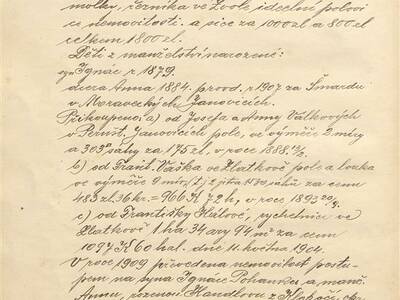 molky, řezníka ve Zvole ideelné polovi
ce nemovitosti. a sice za 1000 zl a 800 zl
celkem 1800 zl.
Děti z manželství narozené:
syn Ignác r 1879.
dcera Anna 1884. provd. r 1907 za Šmardu
v Moraveckých Janovicích.
Přikoupeno: a) od Josefa a Anny Valkových
v Pernšt. Janovicích pole, ve výměře 2 míry
a 303 sáhy za 175 zl. v roce 1888
b) od Frant. Vaška ve Zlatkově pole a louka
ve výměře 2 jitra 1530 sáhů za cenu
483 zl 36 kr. = 966 K 72 h, v roce 1893
c) od Františky Hálové, rychetnice ve
Zlatkově 1 ha 34 ary 94 m² za cenu
1097 K 60 hal. dne 11. května 1904.
V roce 1909 převedena nemovitost postu-
pem na syna Ignáce Pohanku a manž.
Annu, rozenou Handlovou z